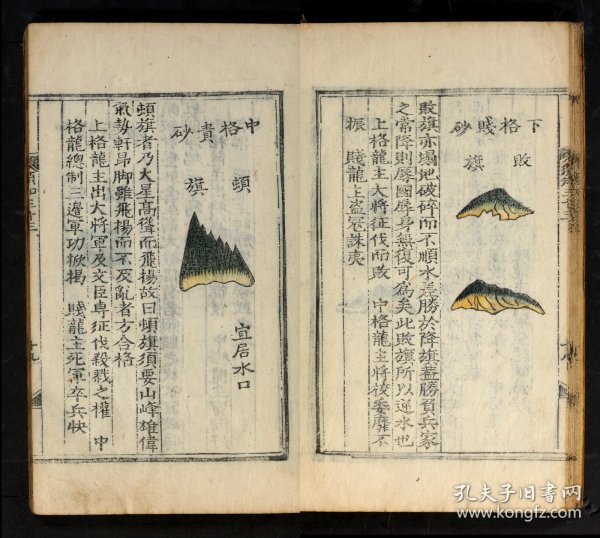 下格賤砂
敗旗
敗旗亦塌地破碎而不順水差勝於降旗蓋勝負兵家
之常降則辱國辱身無復可為矣此敗旗所以逆水也
上格龍主大將征伐而敗　中格龍主將校委靡不
振　賤龍主盜冦誅夷
中格貴砂
頓旗
宜居水口
頓旗者乃火星高聳而飛揚故曰頓旗須要山峰雄偉
氣勢軒昂脚雖飛揚而不及亂者方合格
上格龍主出大將軍及文臣專征伐殺戮之權　中
格龍總制三邊軍功掀揭　賤龍主死軍卒兵快
孔夫子旧书网
www.kongfz.com